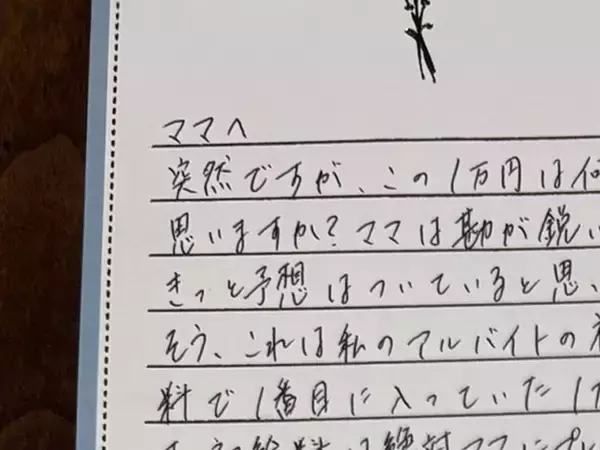 ママへ
突然ですが、この1万円は何
思いますか?ママは勘が鋭い
きっと予想はついていると思い
そう、これは私のアルバイトの初
料で1番目に入っていた1